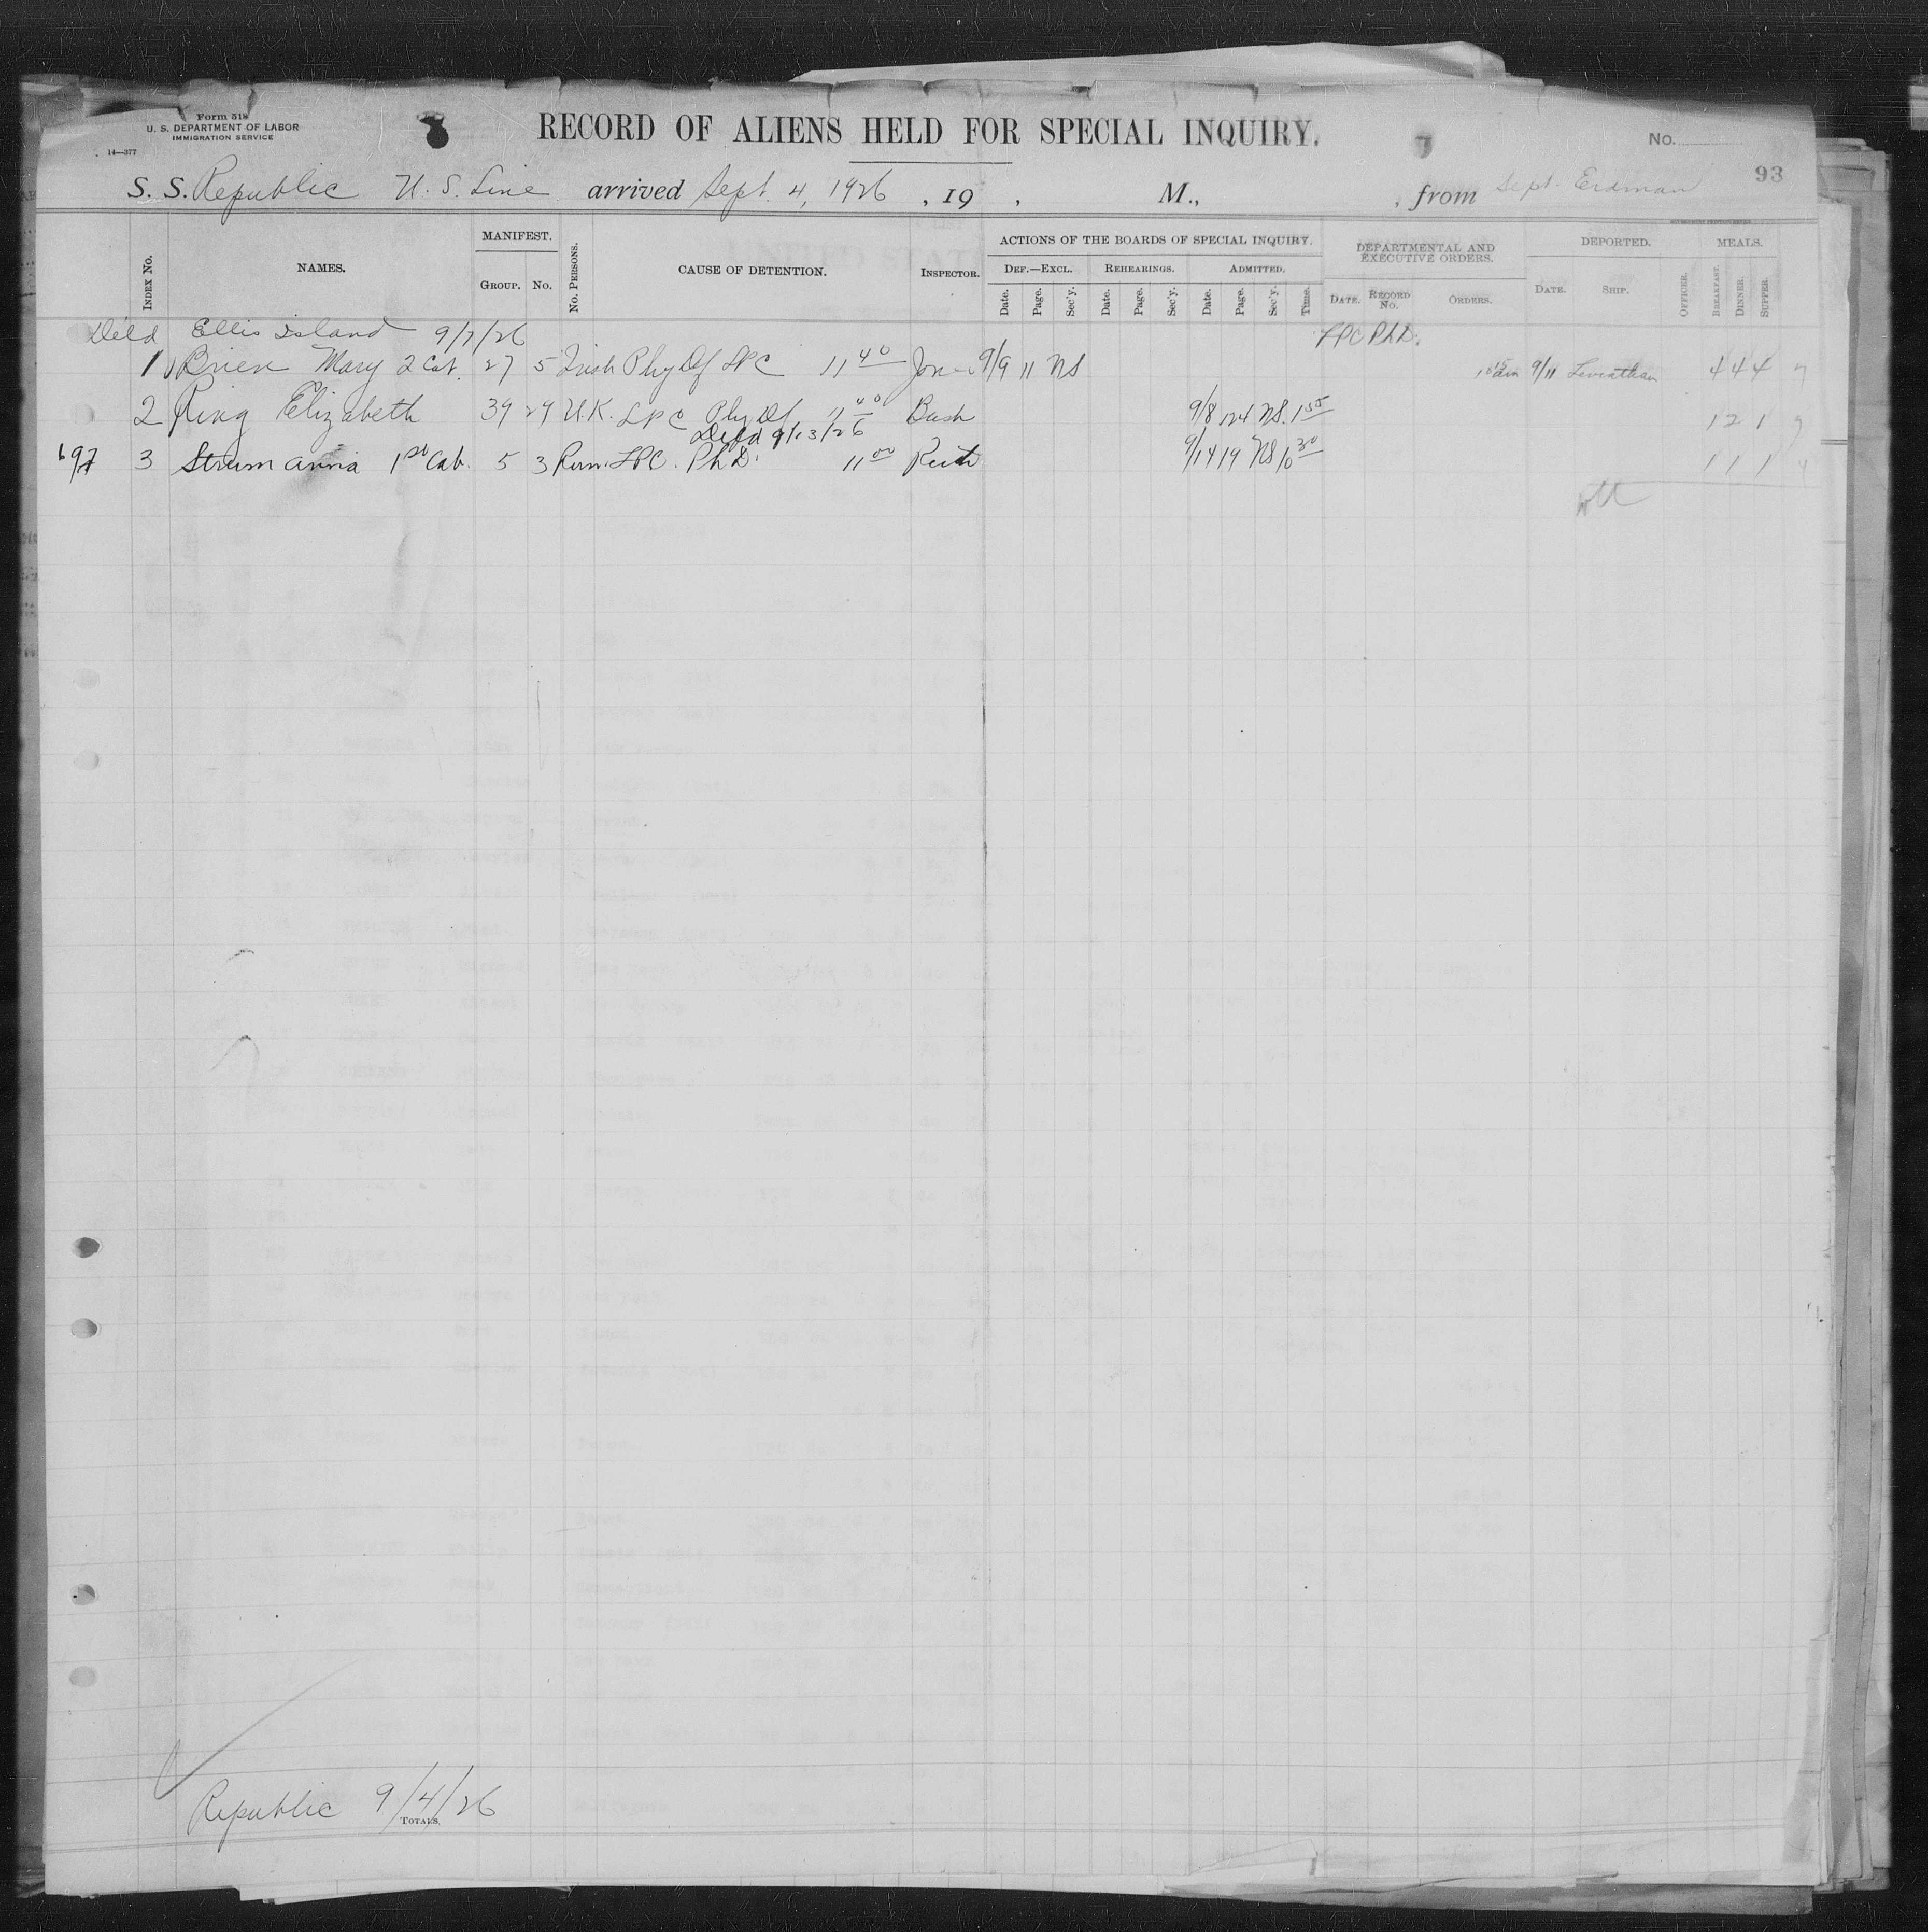 Form 518
U. S. DEPARTMENT OF LABOR
IMMIGRATION SERVICE
14—377
RECORD OF ALIENS HELD FOR SPECIAL INQUIRY.
No.
93
S. S. Republic U. S. Line arrived Sept. 4, 1926 , 19 , M., , from Sept. Erdman
INDEX NO. NAMES. MANIFEST. GROUP. NO. NO. PERSONS. CAUSE OF DETENTION. INSPECTOR. ACTIONS OF THE BOARDS OF SPECIAL INQUIRY. DEF.—EXCL. Date. Page. Sec'y. REHEARINGS. Date. Page. Sec'y. ADMITTED. Date. Page. Sec'y. Time. DEPARTMENTAL AND EXECUTIVE ORDERS. DATE. RECORD NO. ORDERS. DEPORTED. DATE. SHIP. OFFICER. MEALS. BREAKFAST. DINNER. SUPPER.
Deld Ellis Island 9/7/26 LPC PhD.
1 Brien Mary 2 Cab. 27 5 Irish Phy Df LPC 11 40 Jones 9/9 11 NS 9/11 Leviathan 4 4 4
2 Ring Elizabeth 39 29 U.K. LPC Phy Df 11 40 Bush 9/8 124 NS. 1 55 1 2 1
Deld 9/13/26
3 Strum Anna 1st Cab. 5 3 Rum. LPC. PhD. 11 00 9/14 19 NS 10 30 1 1 1
Republic 9/4/26
TOTALS